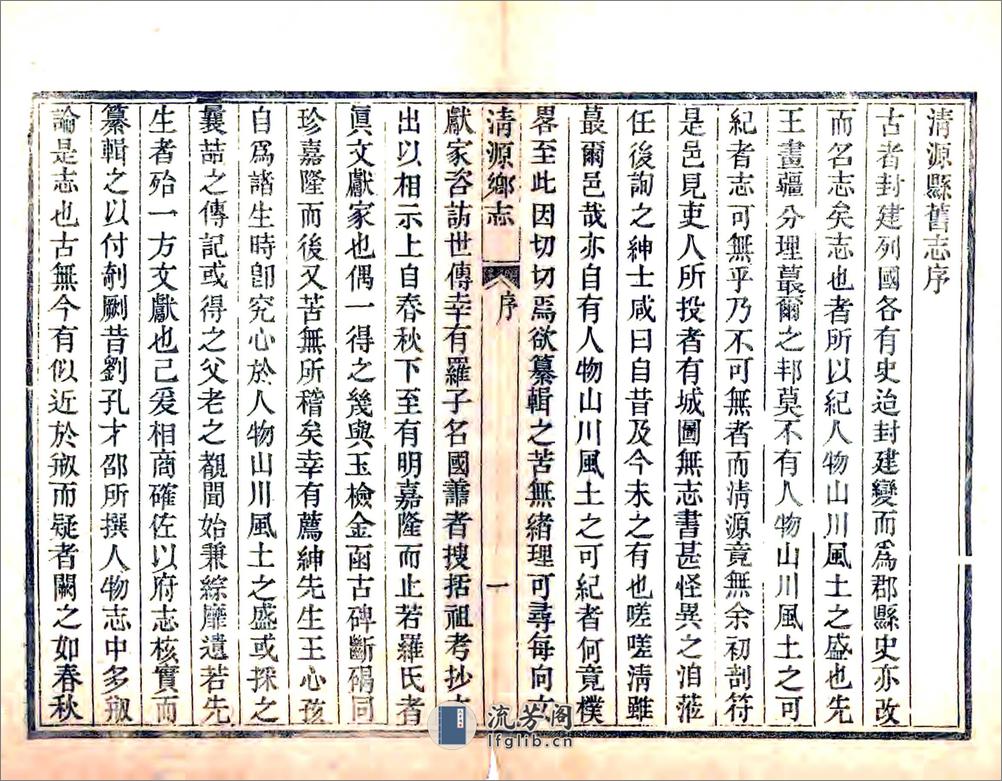 清源縣舊志序
古者封建列國各有史迨封建變而爲郡縣史亦改
而名志矣志也者所以紀人物山川風土之盛也先
王畫疆分理蕞爾之邦莫不有人物山川風土之可
紀者志可無乎乃不可無者而清源竟無余初剖符
是邑見吏人所投者有城圖無志書甚怪異之洎蒞
任後詢之紳士咸曰自昔及今未之有也嗟嗟清雖
蕞爾邑哉亦自有人物山川風土之可紀者何竟樸
畧至此因切切焉欲纂輯之苦無緒理可尋每向文
清源鄉志
序
一
獻家咨訪世傳幸有羅子名國讟者捜括祖考抄本
出以相示上自春秋下至有明嘉隆而止若羅氏者
眞文獻家也偶一得之幾與玉檢金函古碑斷碣同
珍嘉隆而後又苦無所稽矣幸有薦紳先生王心孩
自爲諸生時卽究心於人物山川風土之盛或採之
曩喆之傳記或得之父老之覩聞始秉綜靡遺若先
生者殆一方文獻也已爰相商確佐以府志核實而
纂輯之以付剞劂昔劉孔才邵所撰人物志中多剏
論是志也古無今有似近於剏而疑者闕之如春秋
流芳阁
lfglib.cn